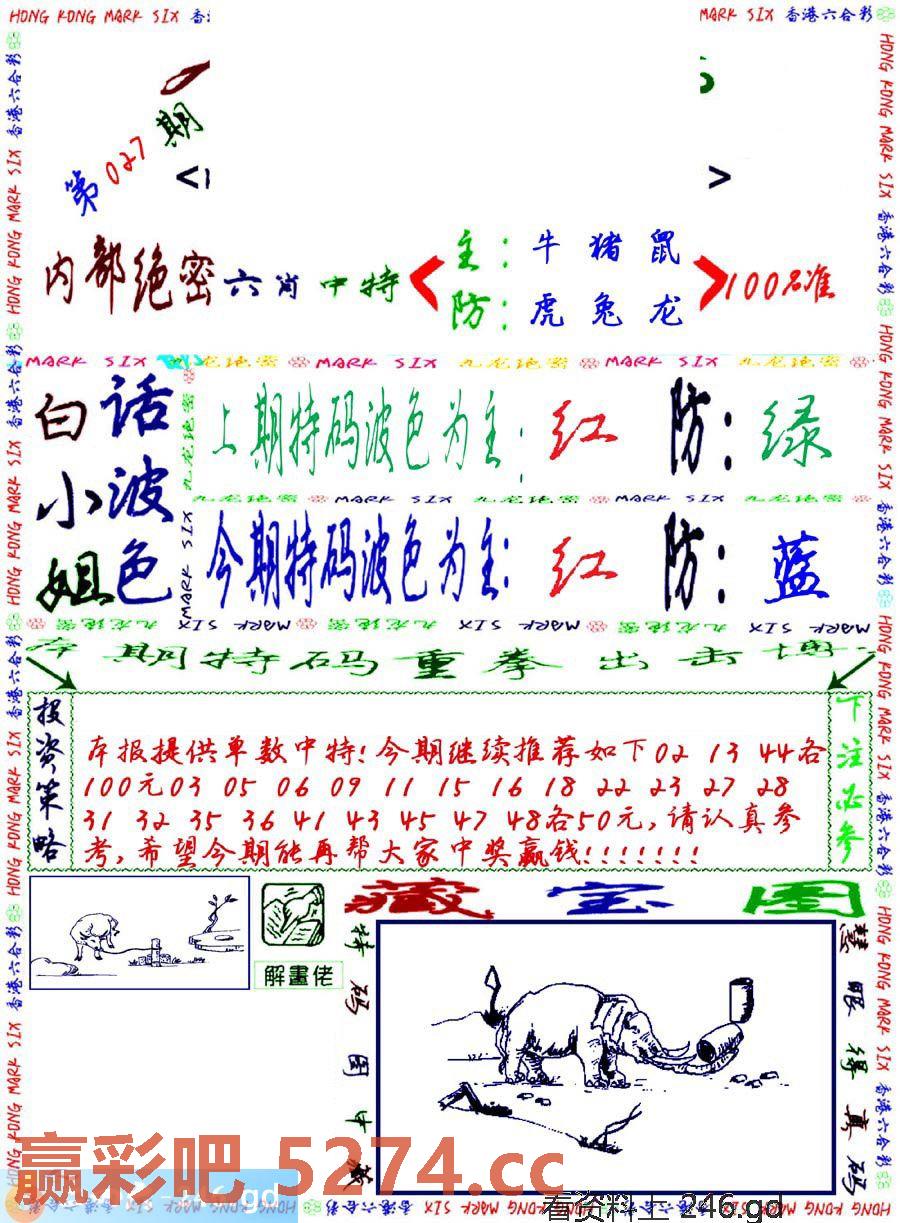 HONG KONG MARK SIX 香港
MARK SIX 香港六合彩
第027期
内部绝密六肖中特
主：牛 猪 鼠
防：虎 兔 龙
100%准
MARK SIX 九龙绝密 MARK SIX 九龙绝密 MARK SIX 九龙绝密
白话
小波
姐色
上期特码波色为主：红 防：绿
九龙绝密 MARK SIX 九龙绝密 MARK SIX 九龙绝密
今期特码波色为主：红 防：蓝
九龙绝密 MARK SIX 九龙绝密 MARK SIX 九龙绝密 MARK SIX
期特码重拳出击
投资策略
本报提供单数中特!今期继续推荐如下02 13 44各
100元03 05 06 09 11 15 16 18 22 23 27 28
31 32 35 36 41 43 45 47 48各50元,请认真参
考,希望今期能再帮大家中奖赢钱!!!!!!!
下注必参
藏宝图
解畫佬
特码图中藏
慧眼得真码
赢彩吧 5274.cc
246.gd
看资料上 246.gd
HONG KONG MARK SIX 香港六合彩